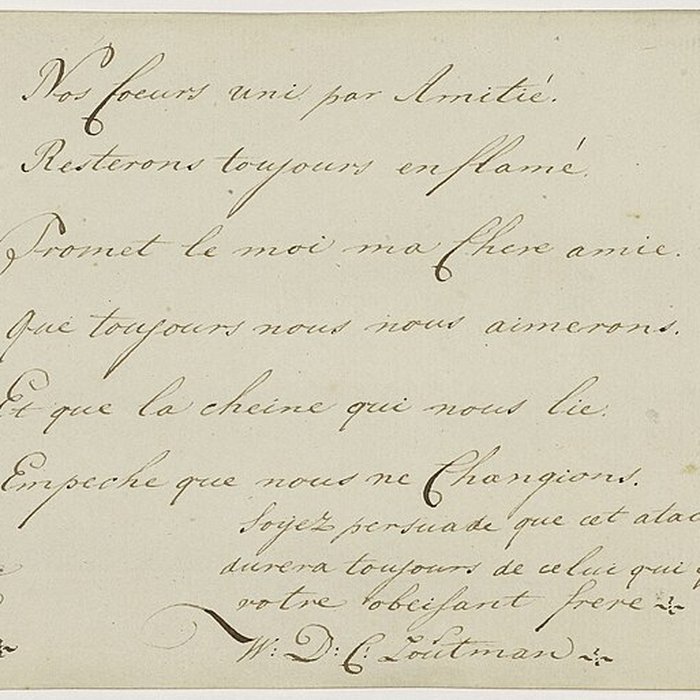 Nos Coeurs uni par Amitié.
Resterons toujours enflamé.
Promet le moi ma Chere amie.
Que toujours nous nous aimerons.
Et que la cheine qui nous lie.
Empeche que nous ne Changions.
Soijez persuade que cet atac
durera toujours de celui qui
votre obeisant frere
W: D: C: Loutman